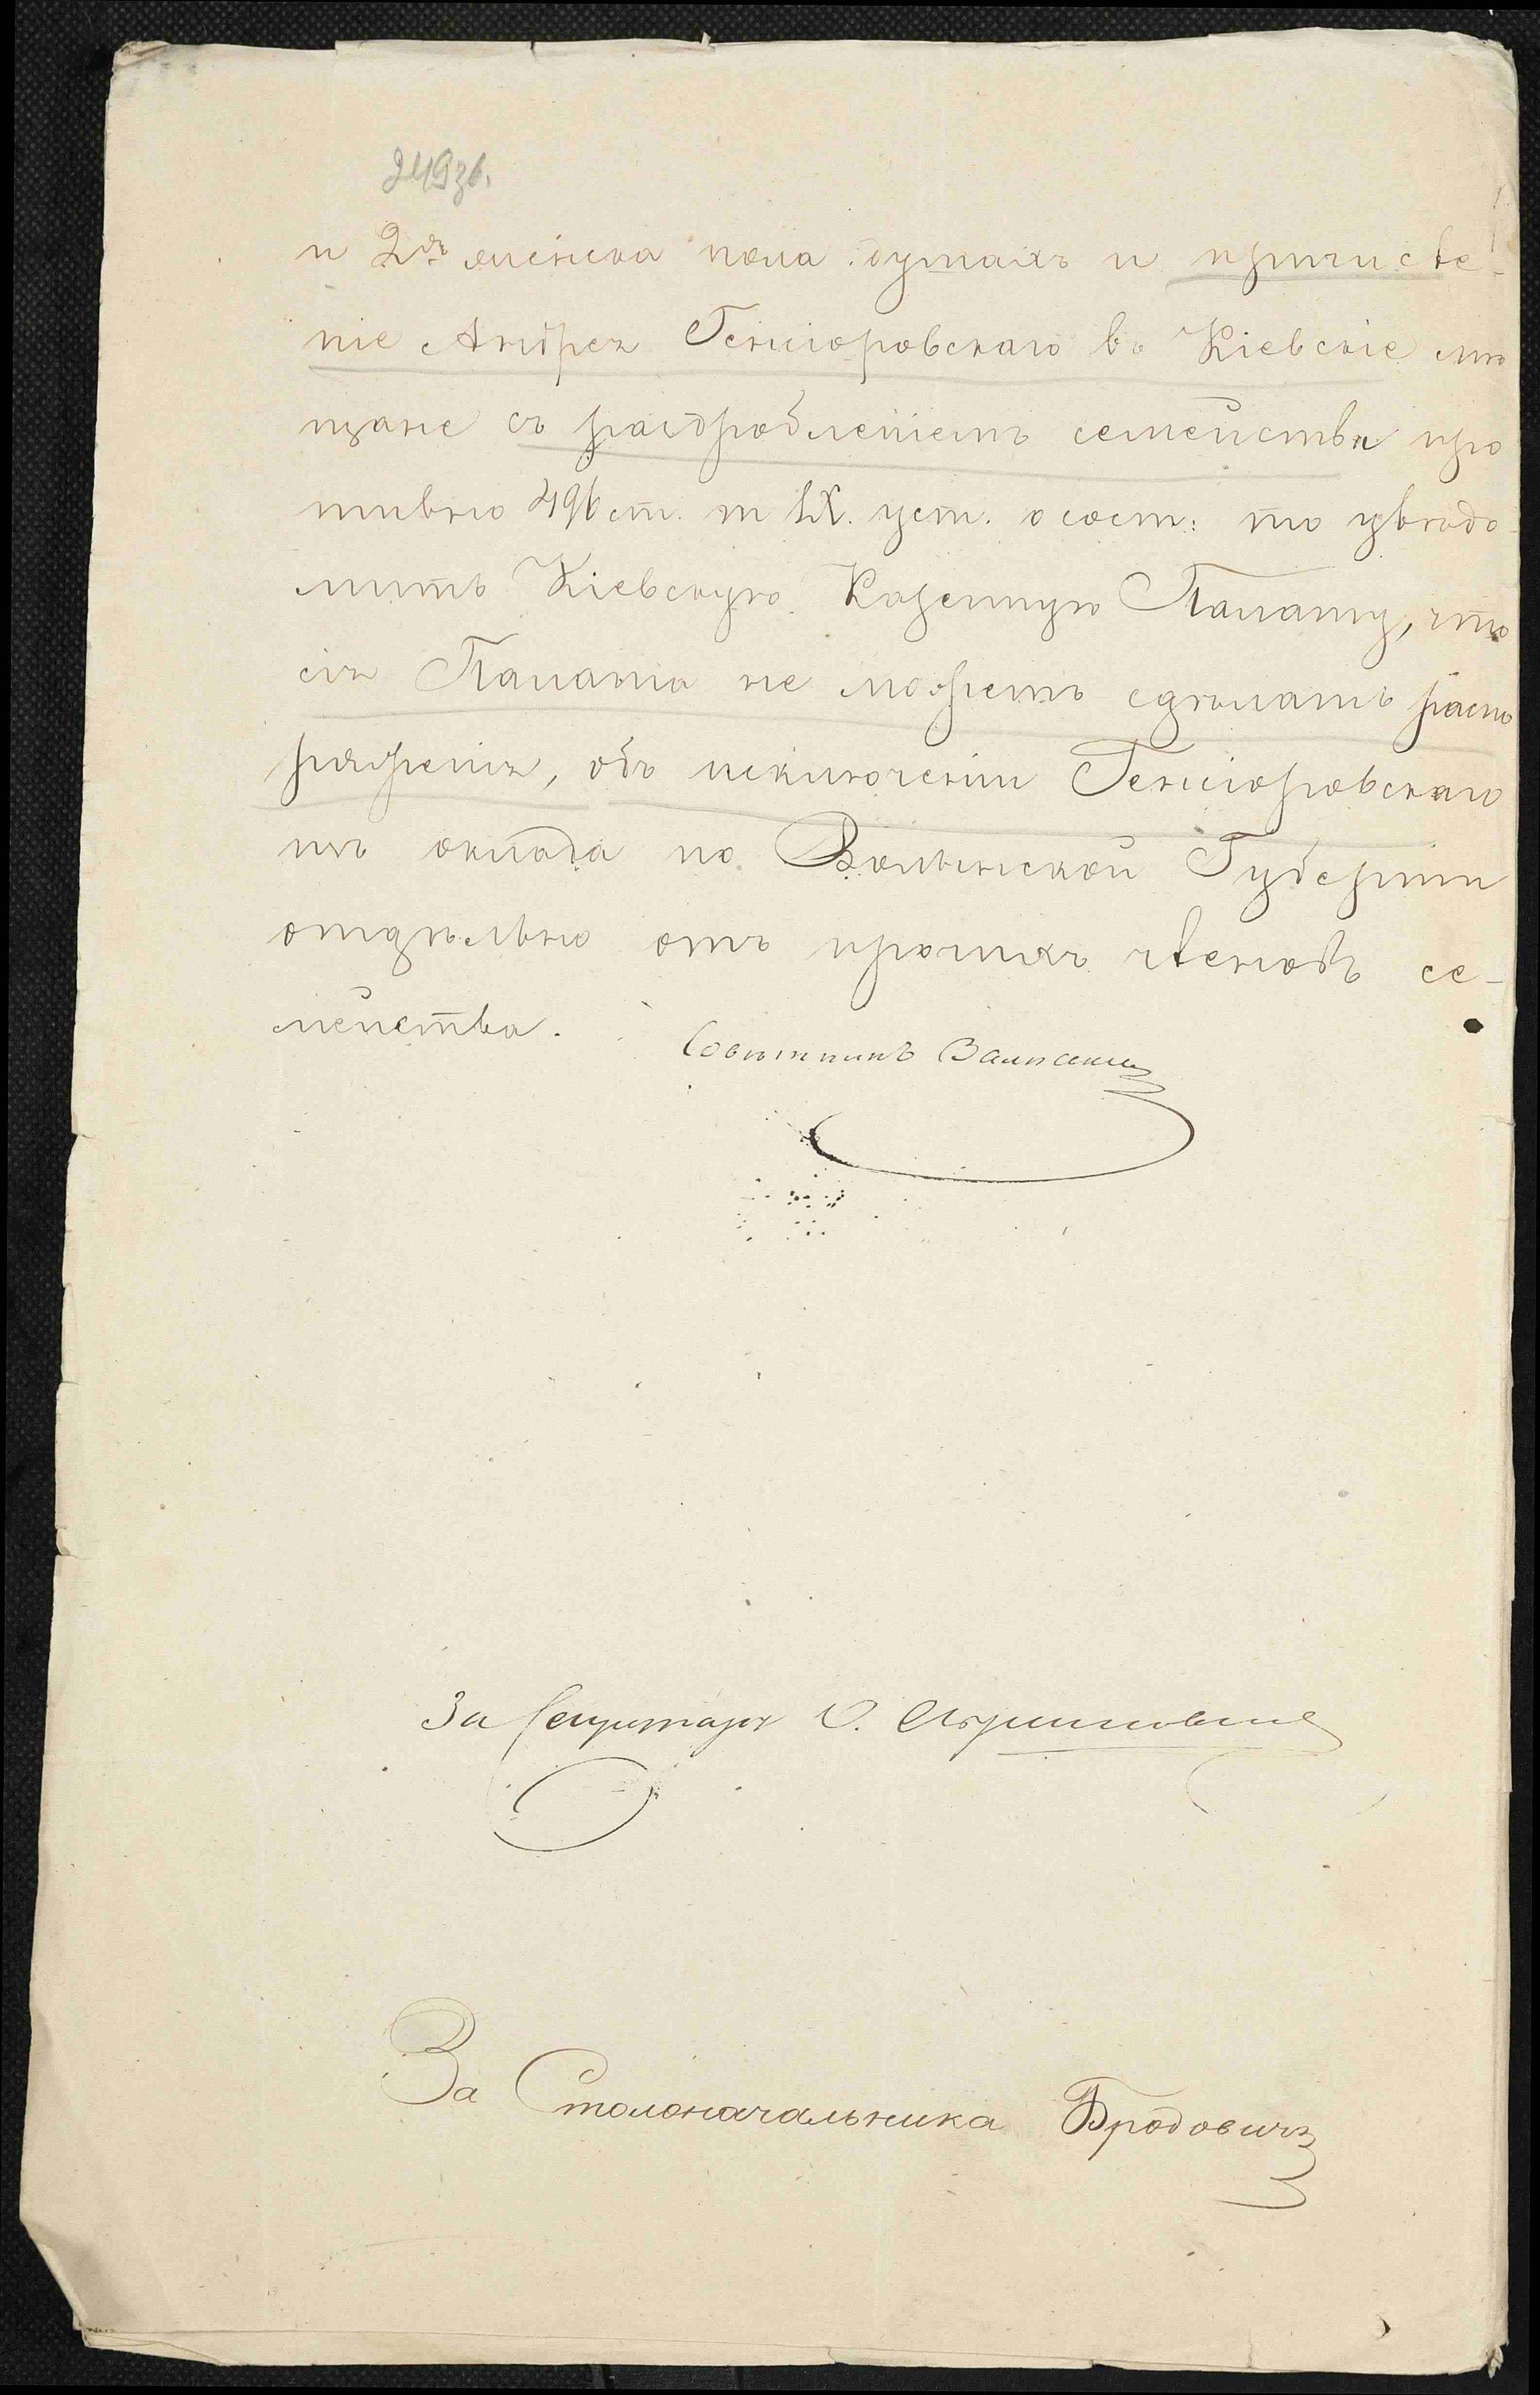 249зв.
и 2хъ женска пола душахъ и причисле-
ніе Андрея Генсіоровскаго въ Кіевскіе мѣ
щане съ раздробленіемъ семейства про
тивно 496 ст. т IX. уст. о сост: то увѣдо
мить Кіевскую Казенную Палату, что
сія Палата не можетъ сдѣлать распо
ряженія, объ исключеніи Генсіоровскаго
изъ оклада по Волынской Губерніи
отдѣльно отъ прочихъ членовъ се-
мейства.
Совѣтникъ
За Секретаря
За Столоначальника Бродовичъ